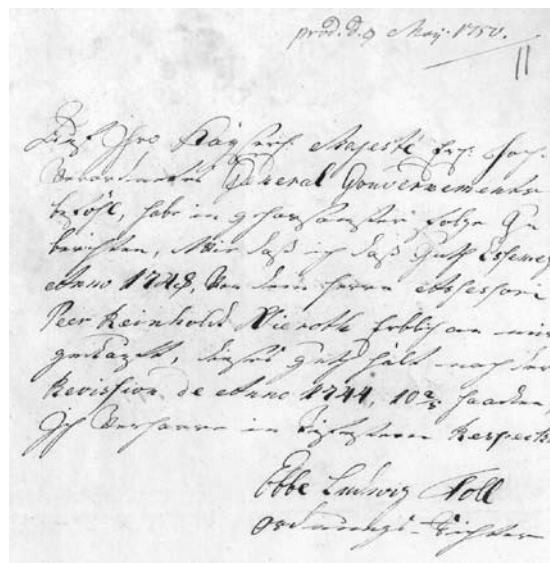 prod. d. 9 Maÿ. 1750.
11
Auf Ihro Kayserl. Majesté Erl. Hoch
Verordneten General Gouvernements
befehl, habe in gehorsamster folge
berichten, Wie daß ich daß Guth
Anno 1748, Von dem Herrn Assessori
Peer Reinhold Nieroth Erblich an mir
gekauft, dieses guth hält nach der
Revission de Anno 1744, 10 2/3 haacken,
Ich Verharre in Respect
Ebbe Ludwig Toll
Ordnungs-Richter